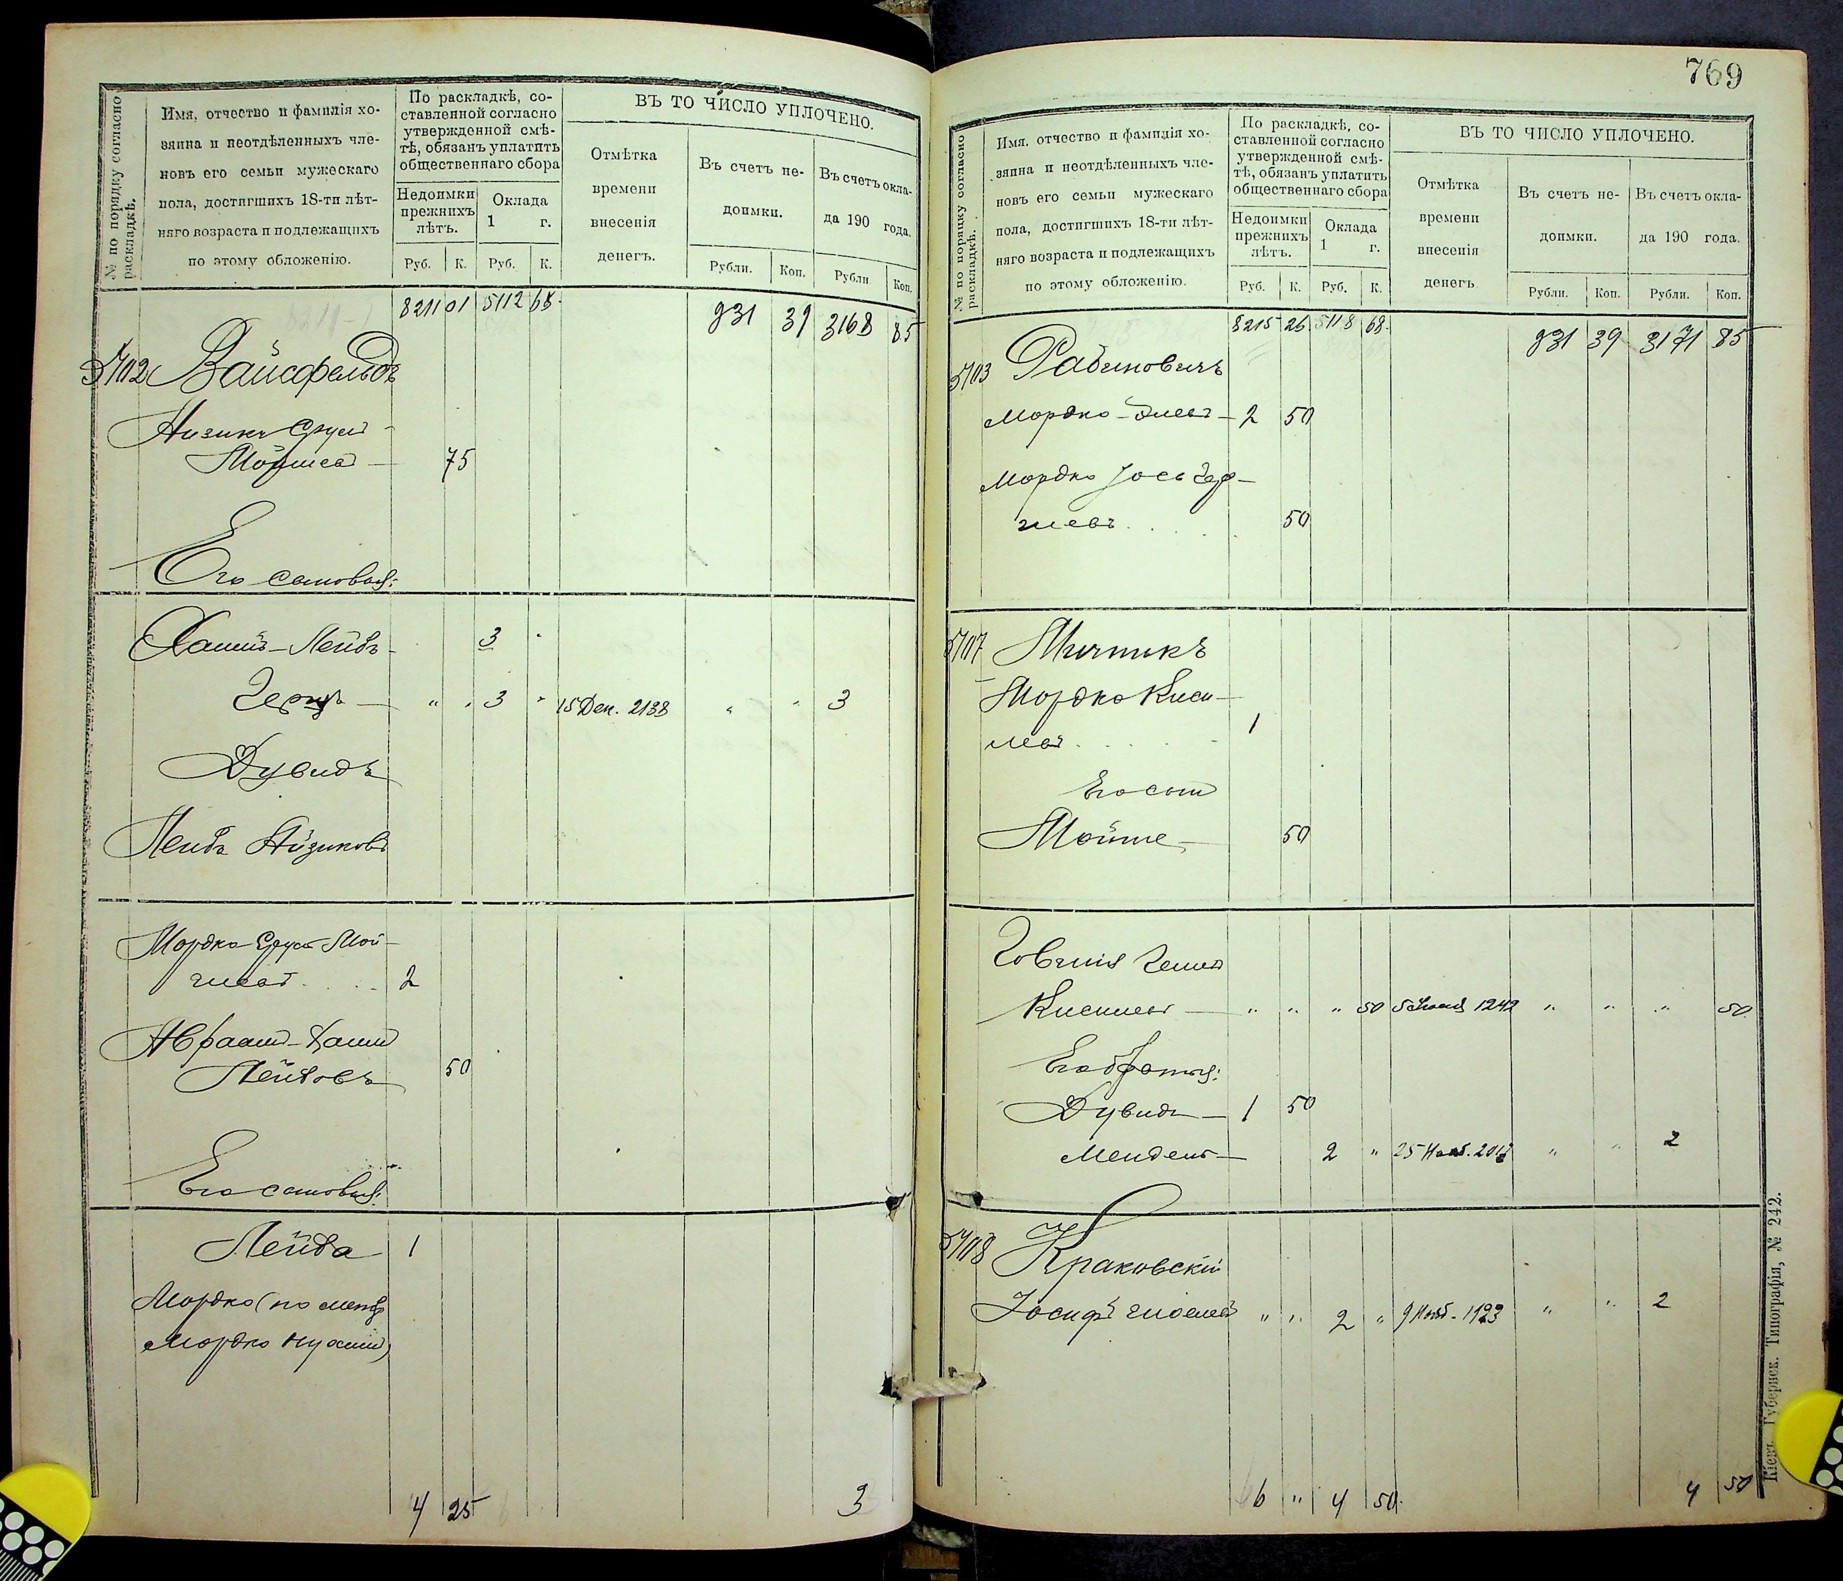 № по порядку согласно раскладкѣ.
Имя, отчество и фамилія хо-
зяина и неотдѣленныхъ чле-
новъ его семьи мужескаго
пола, достигшихъ 18-ти лѣт-
няго возраста и подлежащихъ
по этому обложенію.
По раскладкѣ, со-
ставленной согласно
утвержденной смѣ-
тѣ, обязанъ уплатить
общественнаго сбора
Недоимки
прежнихъ
лѣтъ.
Оклада
1 г.
Руб. К. Руб. К.
ВЪ ТО ЧИСЛО УПЛОЧЕНО.
Отмѣтка
времени
внесенія
денегъ.
Въ счетъ не-
доимки.
Въ счетъ окла-
да 190 года.
Рубли. Коп. Рубли Коп.
8211 01 5112 68 931 39 3168 85
5702 Вайсфельдъ
Айзикъ Сруль
Мойшев 75
Его сыновья:
Хаимъ-Лейбъ 3 "
Герцъ " " 3 " 15 Дек. 2138 " " 3
Дувидъ
Лейба Айзиковъ
Мордко Сруль Мой-
шевъ 2
Авраамъ-Хаимъ
Лейбовъ 50
Его сыновья:
Лейба 1
Мордко (по метр
Мордко Нухим)
4 25 3
769
№ по порядку согласно раскладкѣ.
Имя, отчество и фамилія хо-
зяина и неотдѣленныхъ чле-
новъ его семьи мужескаго
пола, достигшихъ 18-ти лѣт-
няго возраста и подлежащихъ
по этому обложенію.
По раскладкѣ, со-
ставленной согласно
утвержденной смѣ-
тѣ, обязанъ уплатить
общественнаго сбора
Недоимки
прежнихъ
лѣтъ.
Оклада
1 г.
Руб. К. Руб. К.
ВЪ ТО ЧИСЛО УПЛОЧЕНО.
Отмѣтка
времени
внесенія
денегъ
Въ счетъ не-
доимки.
Въ счетъ окла-
да 190 года.
Рубли. Коп. Рубли. Коп.
8215 26 5118 68 931 39 3171 85
5703 Рабиновичъ
Мордко 2 50
Мордко Іось Гер-
50
5707 Мичникъ
Мордко Киси-
левъ 1
Его сын
Мойше 50
Кисилевъ " " " 50 1242 " " " 50
Его братья:
Дувидъ 1 50
Мендель 2 " 25 Нояб. 2012 " " 2
5708 Краковскій
Іосифъ " " 2 " 9 Нояб. 1923 " " 2
6 " 4 50 4 50
Кіевъ. Губернск. Типографія, № 242.